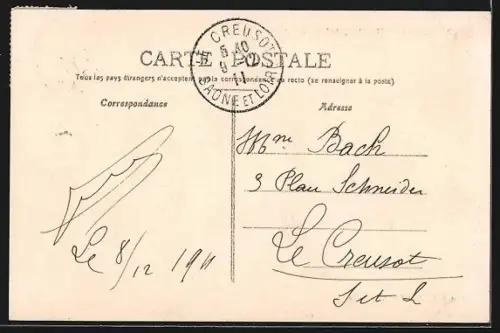 LE CREUSOT
5 40
9 -12
11
SAONE ET LOIRE
CARTE POSTALE
Tous les pays étrangers n'acceptent pas la correspondance au recto (se renseigner à la poste)
Correspondance
Adresse
Mme Bach
3 Place Schneider
Le Creusot
S et L
Le 8/12 1911